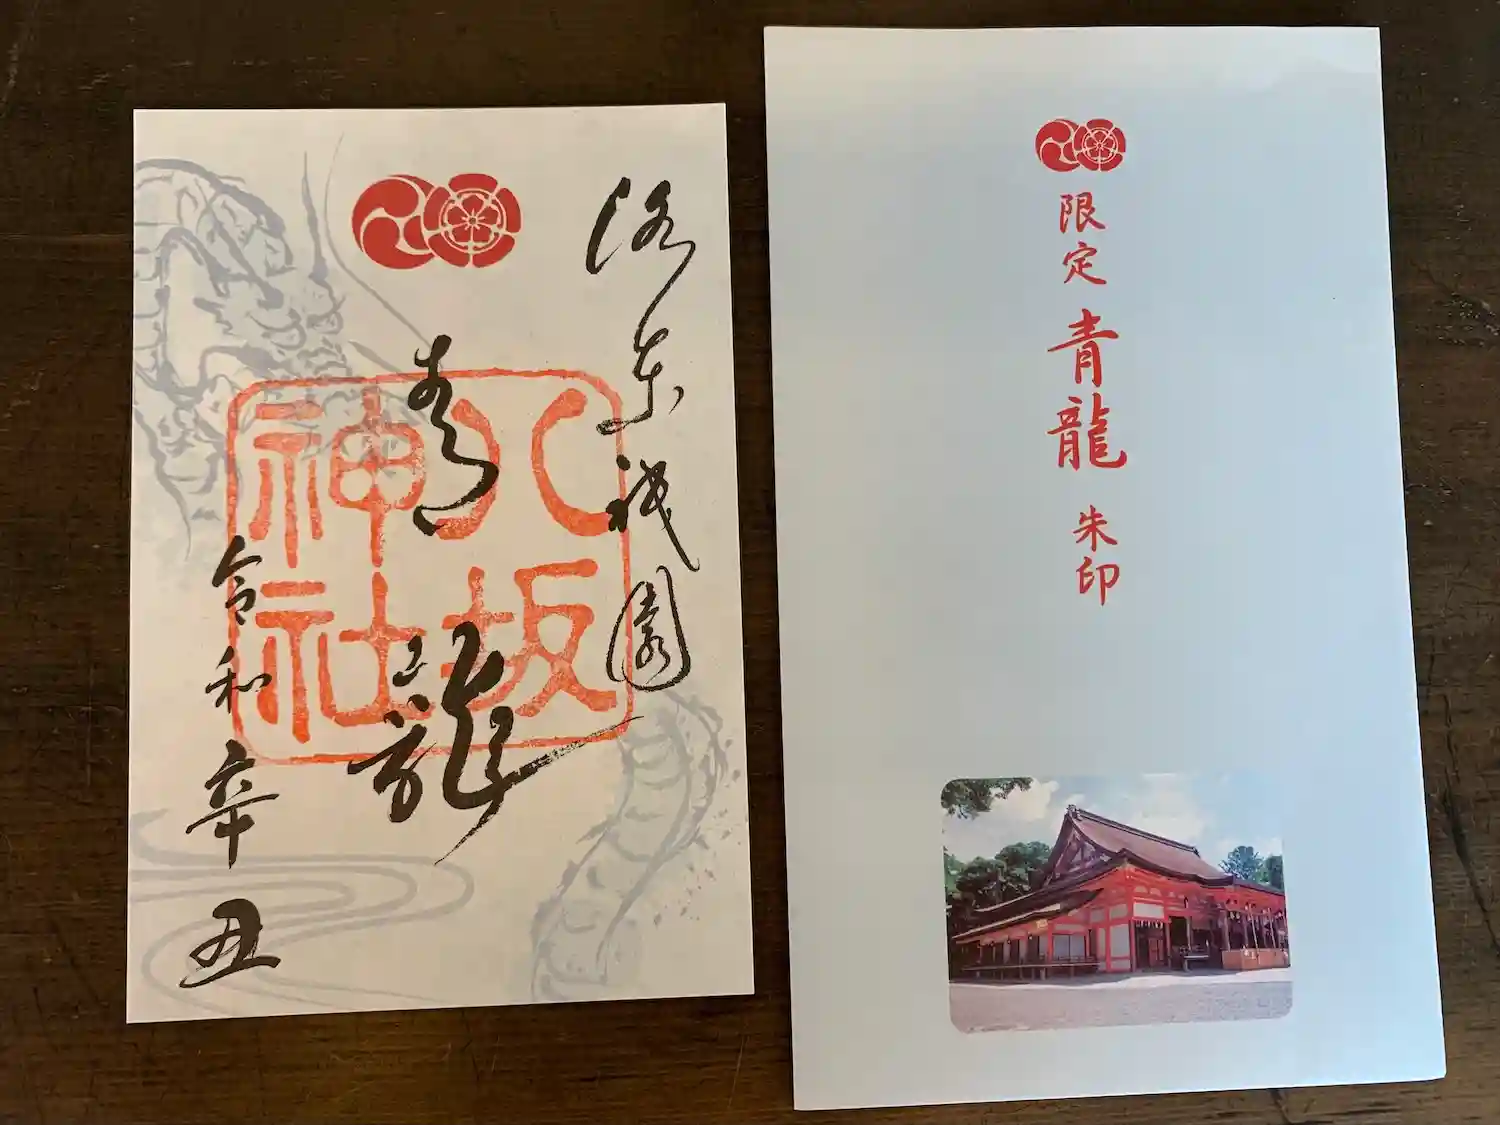 洛東祇園
青龍
八坂
神社
令和辛丑
限定 青龍 朱印